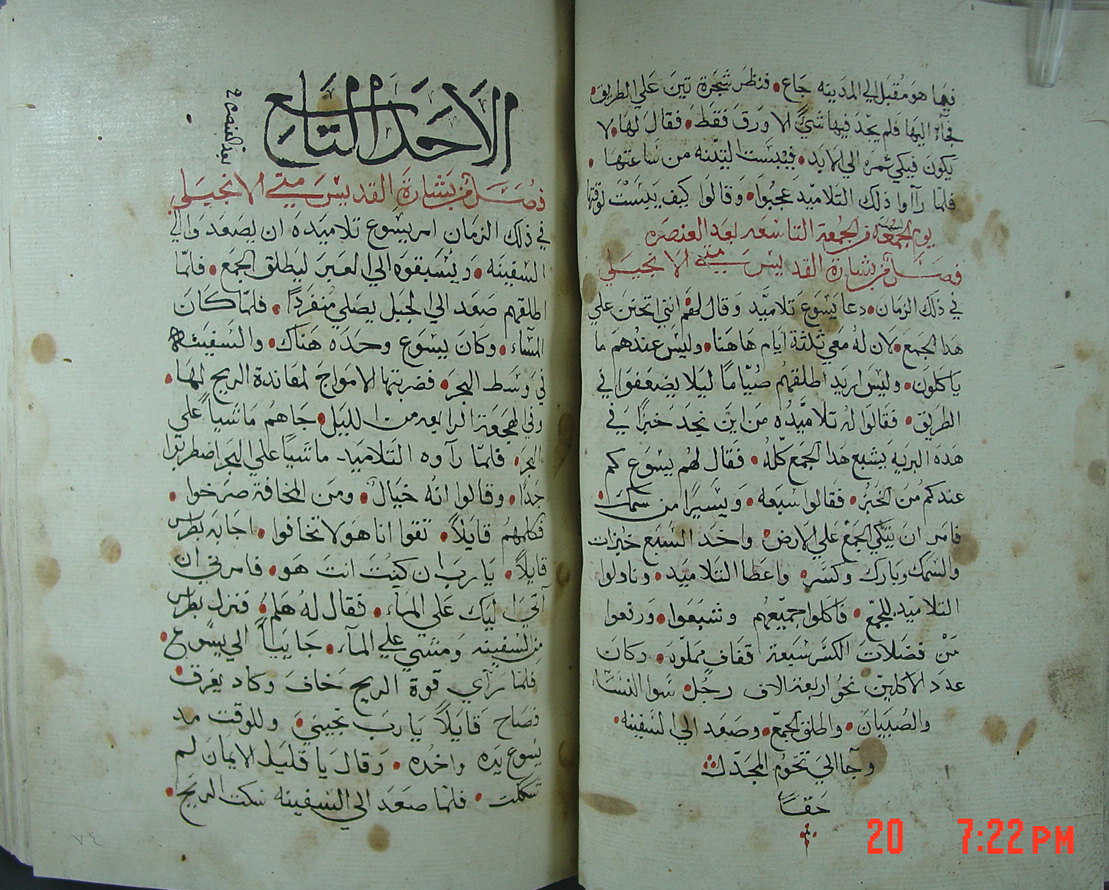 فيما هو مقبل الي المدينه جاع • فنظر شجرة تين علي الطريق
فجاء اليها فلم يجد فيها شي الا ورق فقط • فقال لها لا
يكون فيكي ثمره الي الابد • فيبست التينه من ساعتها •
فلما راوا ذلك التلاميد عجبوا • وقالوا كيف يبست لوقتها
يوم الجمعه من الجمعة التاسعه بعد العنصره
فصل من بشارة القديس متي الانجيلي
في ذلك الزمان • دعا يسوع تلاميد وقال لهم انني اتحنن علي
هدا الجمع • لان له معي ثلثة ايام هاهنا • وليس عندهم ما
ياكلون • وليس اريد اطلقهم صياما ليلا يضعفوا في
الطريق • فقالوا له تلاميده من اين نجد خبزا في
هده البريه يشبع هدا الجمع كله • فقال لهم يسوع كم
عندكم من الخبز • فقالوا سبعه • ويسيرا من سمك •
فامر ان يتكي الجمع علي الارض • واخد السبع خبزات
والسمك وبارك وكسر • واعطا التلاميد • وناولوا
التلاميد للجمع • فاكلوا جميعهم وشبعوا • ورفعوا
من فضلات الكسر سبعة قفاف مملوه • وكان
عدد الاكلين نحو اربعة الاف رجل • سوا النسا
والصبيان • واطلق الجمع • وصعد الي السفينه •
وجا الي تخوم المجدل
حقا
الاحد التاسع
بعد العنصره
فصل من بشارة القديس متي الانجيلي
في ذلك الزمان امر يسوع تلاميده ان يصعدوا الي
السفينه • ويسبقوه الي العبر ليطلق الجمع • فلما
اطلقهم صعد الي الجبل يصلي منفردا • فلما كان
المساء • وكان يسوع وحده هناك • والسفينه
في وسط البحر • فضربتها الامواج لمعاندة الريح لها •
وفي الهجعة الرابعه من الليل • جاهم ماشيا علي
البحر • فلما راوه التلاميد ماشيا علي البحر اضطربوا
جدا • وقالوا انه خيال • ومن المخافة صرخوا •
فكلمهم قايلا • تقوا انا هو لا تخافوا • اجابه بطرس
قايلا • يارب ان كنت انت هو • فامرني ان
اتي اليك علي الماء • فقال له هلم • فنزل بطرس
من السفينه ومشي علي الماء • جاييا الي يسوع •
فلما راي قوة الريح خاف وكاد يغرق
فصاح قايلا يارب نجيني • وللوقت مد
يسوع يده واخده • وقال يا قليل الايمان لم
تشككت • فلما صعد الي السفينه سكت الريح •
٧٤
20 7:22 PM